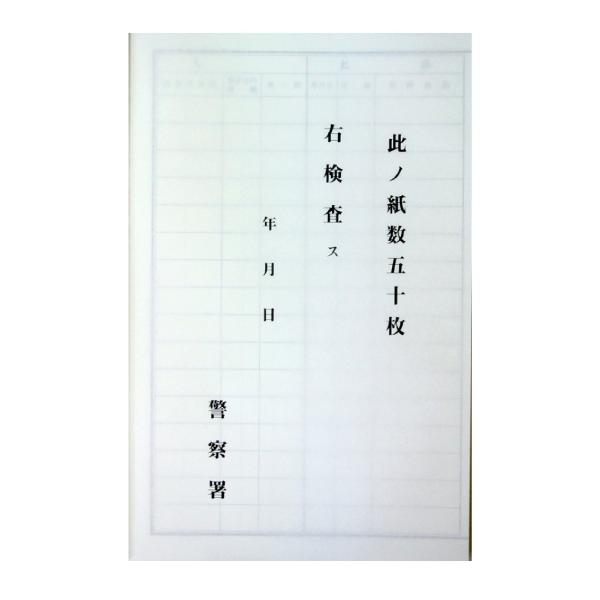 此ノ紙数五十枚
右検査ス
年月日
警察署